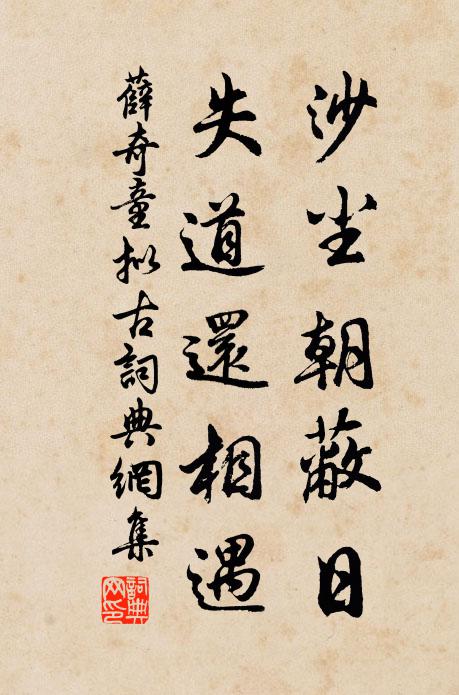 沙尘朝蔽日
失道還相遇
薛奇童拟古詞典網集
詞典网印